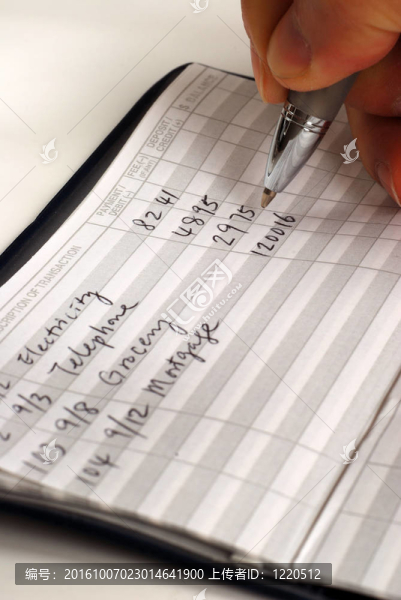 DESCRIPTION OF TRANSACTION PAYMENT/ DEBIT (-) FEE (-) DEPOSIT/ CREDIT (+) $ BALANCE
Electricity 8241
9/3 Telephone 4895
103 9/8 Grocery 2975
104 9/12 Mortgage 120016
编号：20161007023014641900 上传者ID：1220512